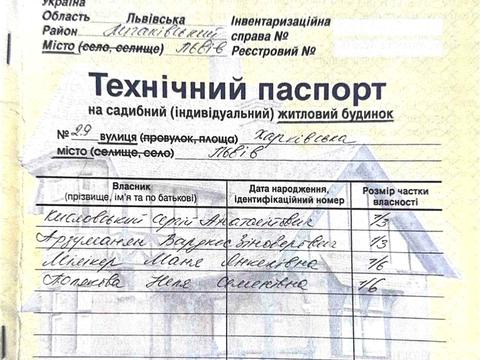 Україна
Область Львівська Інвентаризаційна
Район Личаківський справа №
Місто (село, селище) Львів Реєстровий №
Технічний паспорт
на садибний (індивідуальний) житловий будинок
№ 29 вулиця (провулок, площа) Харківська
місто (селище, село) Львів
Власник Дата народження, Розмір частки
(прізвище, ім'я та по батькові) ідентифікаційний номер власності
Кисловський Сергій Анатолійович 1/3
Варужес Зіновійович 1/3
Маня Янкелівна 1/6
Полякова Неля Семенівна 1/6